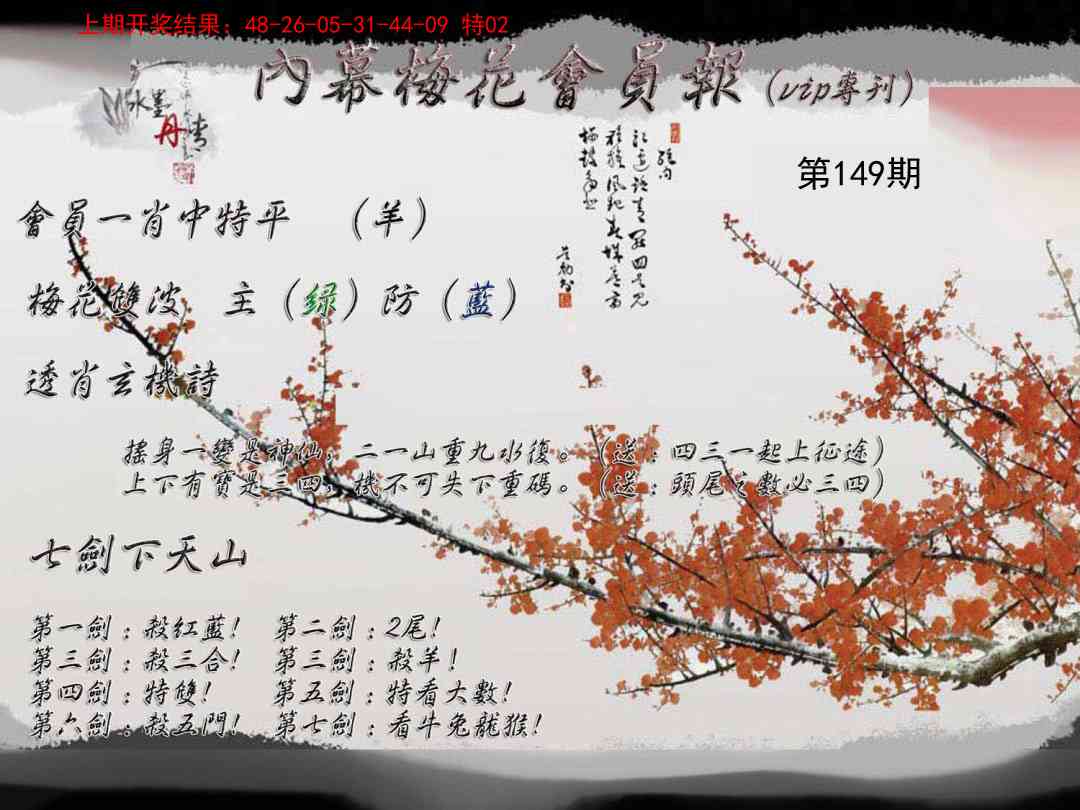 上期开奖结果：48-26-05-31-44-09 特02
內幕梅花會員報（vip專刊）
水墨
丹青
第149期
會員一肖中特平 （羊）
梅花雙波 主（緑）防（藍）
透肖玄機詩
搖身一變是神仙，二一山重九水復。（送：四三一起上征途）
上下有寶是三四，機不可失下重碼。（送：頭尾之數必三四）
七劍下天山
第一劍：殺紅藍！ 第二劍：2尾！
第三劍：殺三合！ 第三劍：殺羊！
第四劍：特雙！ 第五劍：特看大數！
第六劍：殺五門！ 第七劍：看牛兔龍猴！